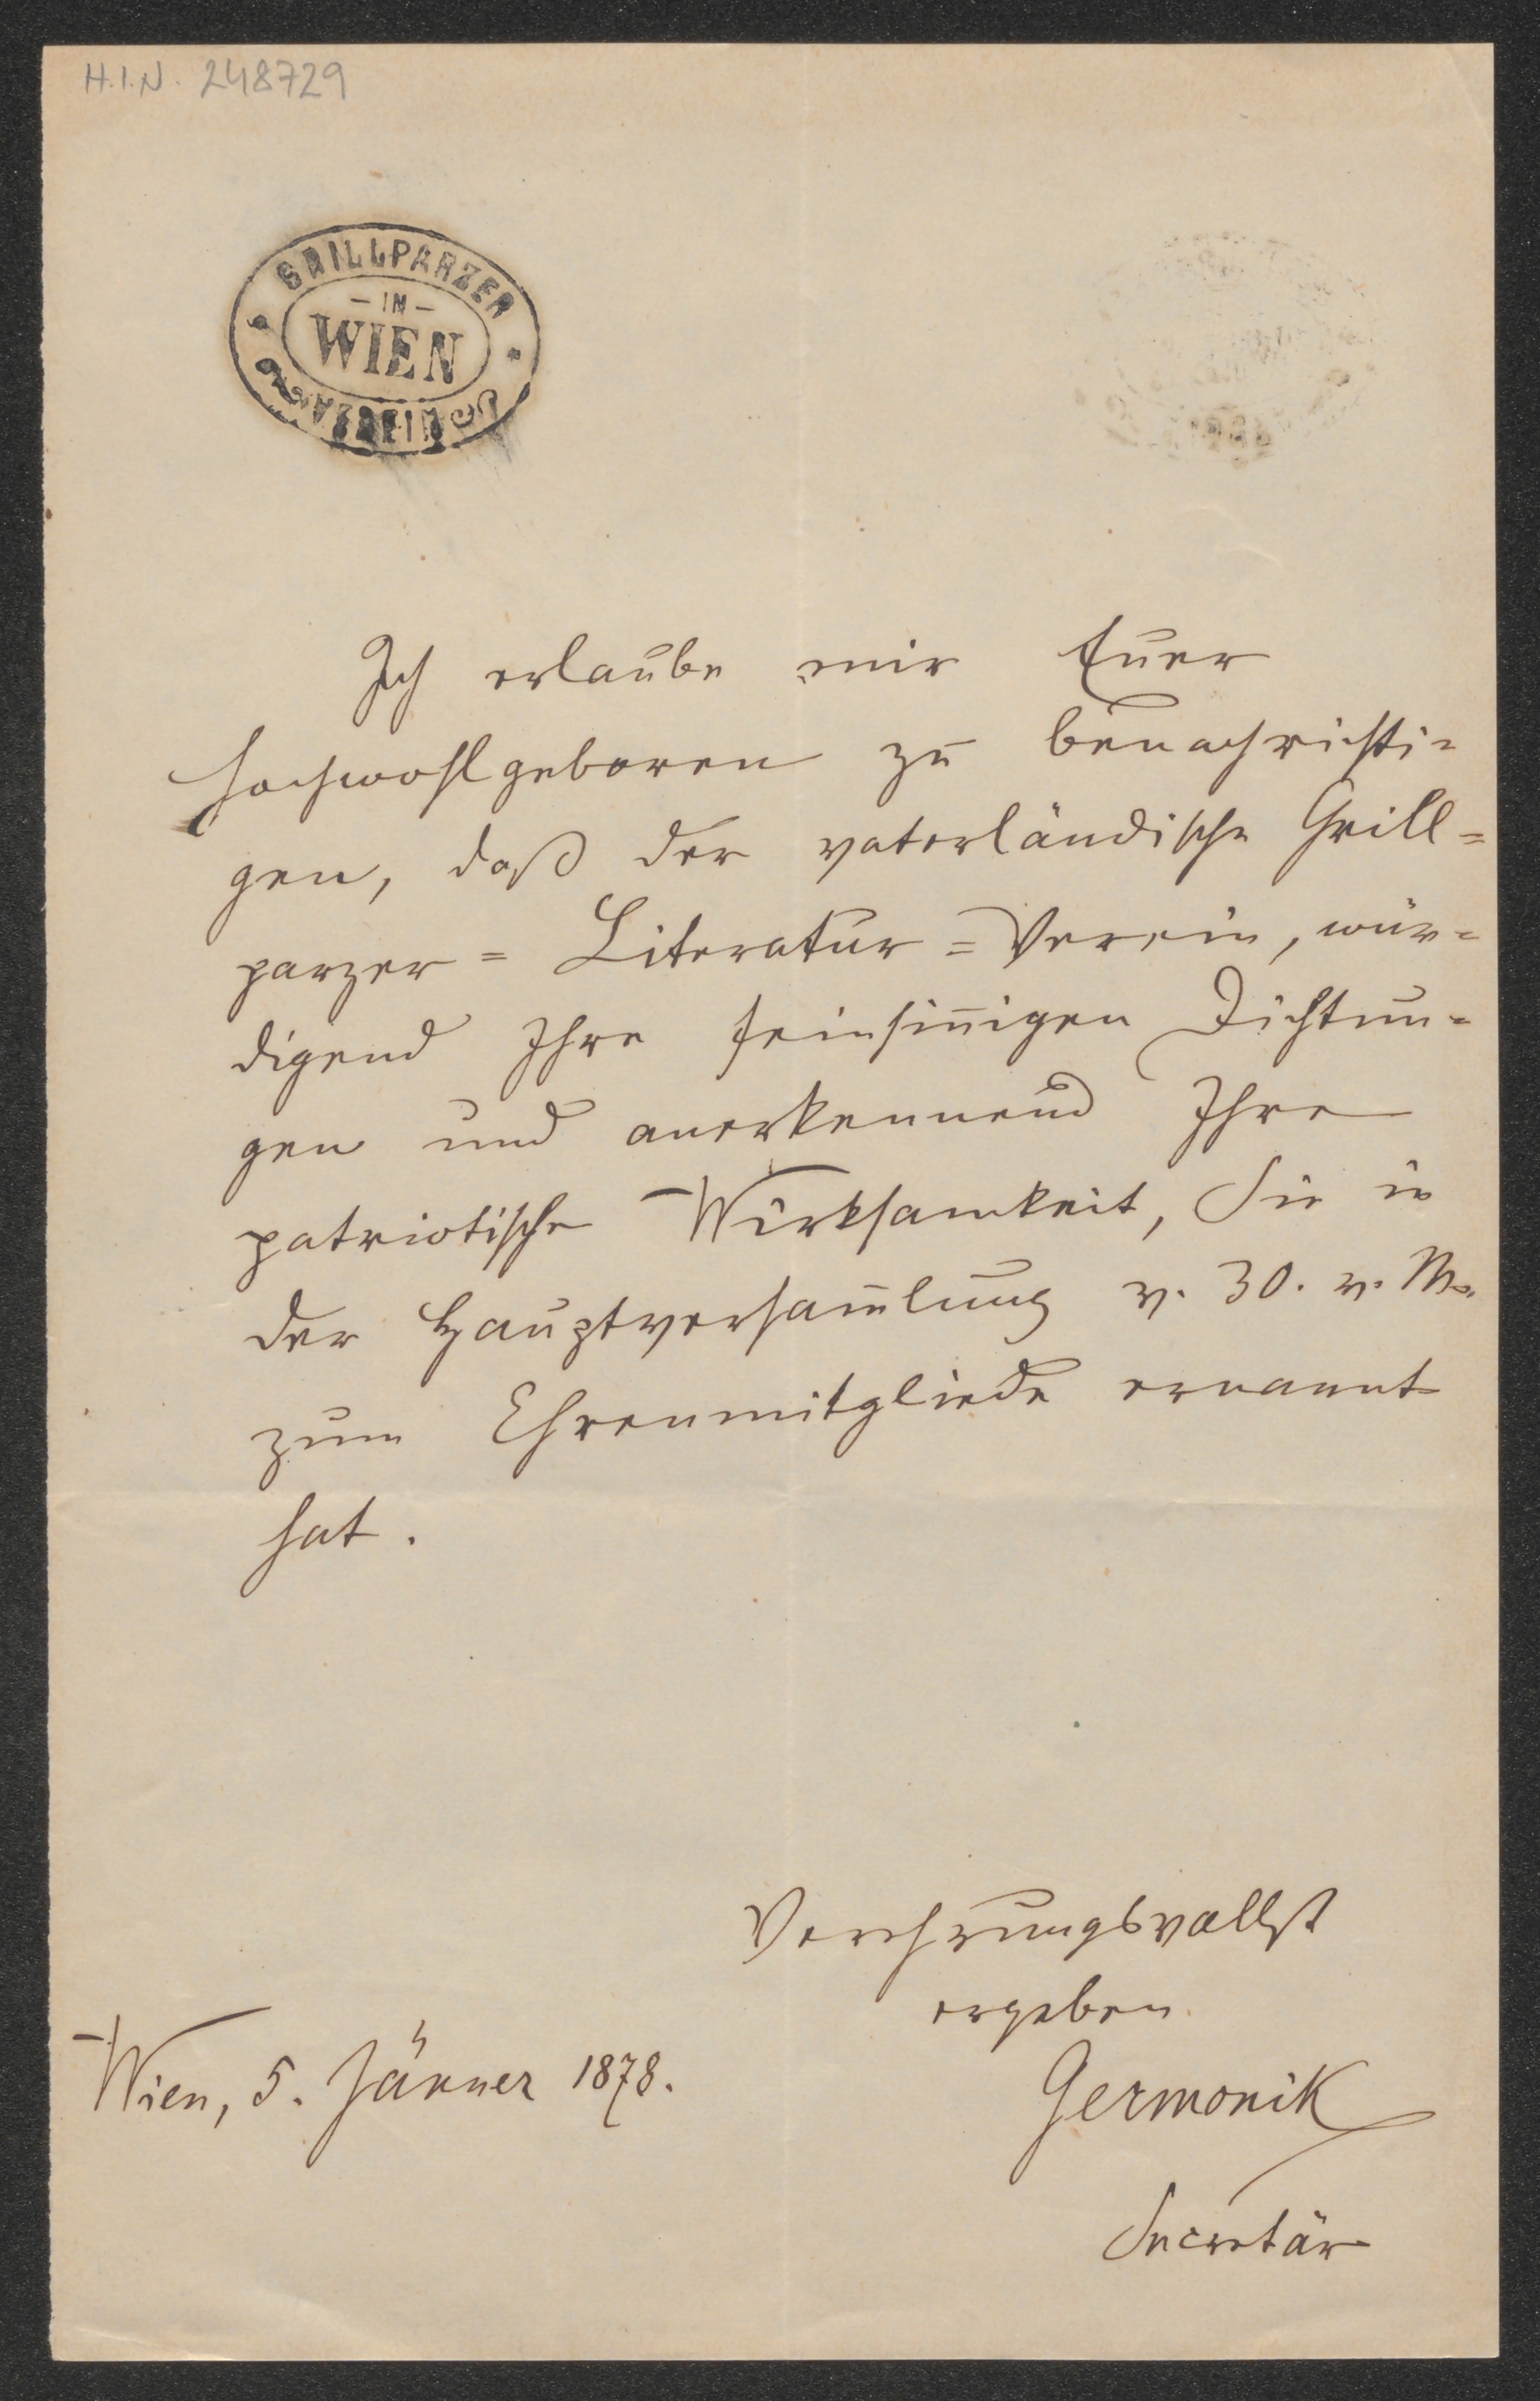 H.I.N. 248729
GRILLPARZER
- IN -
WIEN
VEREIN
Ich erlaube mir Euer
Hochwohlgeboren zu benachrichti-
gen, daß der vaterländische Grill-
parzer-Literatur-Verein, wür-
digend Ihre feinsin̄igen Dichtun-
gen und anerkennend Ihre
patriotische Wirksamkeit, Sie in
der Hauptversam̄lung v. 30. v. M.
zum Ehrenmitgliede ernannt
hat.
Verehrungsvollst
ergeben
Wien, 5. Jänner 1878.
Germonik
Secretär